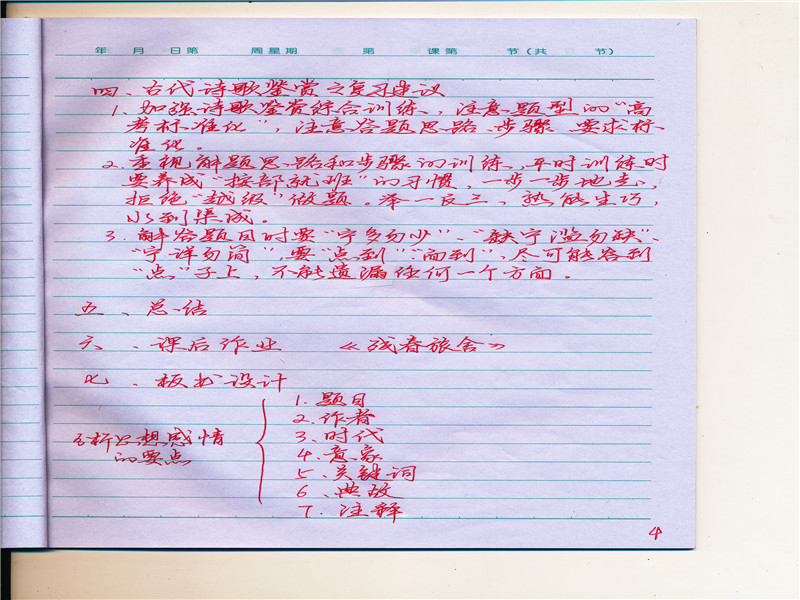 年 月 日第 周星期 第 课第 节(共 节)
四、古代诗歌鉴赏之复习建议
1、加强诗歌鉴赏综合训练，注意题型的“高
考标准化”，注意答题思路、步骤、要求标
准化。
2、重视解题思路和步骤的训练，平时训练时
要养成“按部就班”的习惯，一步一步地走，
拒绝“越级”做题。举一反三，熟能生巧，
水到渠成。
3、解答题目时要“宁多勿少”、“缺宁滥勿缺”、
“宁详勿简”，要“点到”“面到”，尽可能答到
“点”子上，不能遗漏任何一个方面。
五、总结
六、课后作业 《残春旅舍》
七、板书设计
分析思想感情
的要点
1、题目
2、作者
3、时代
4、意象
5、关键词
6、典故
7、注释
4